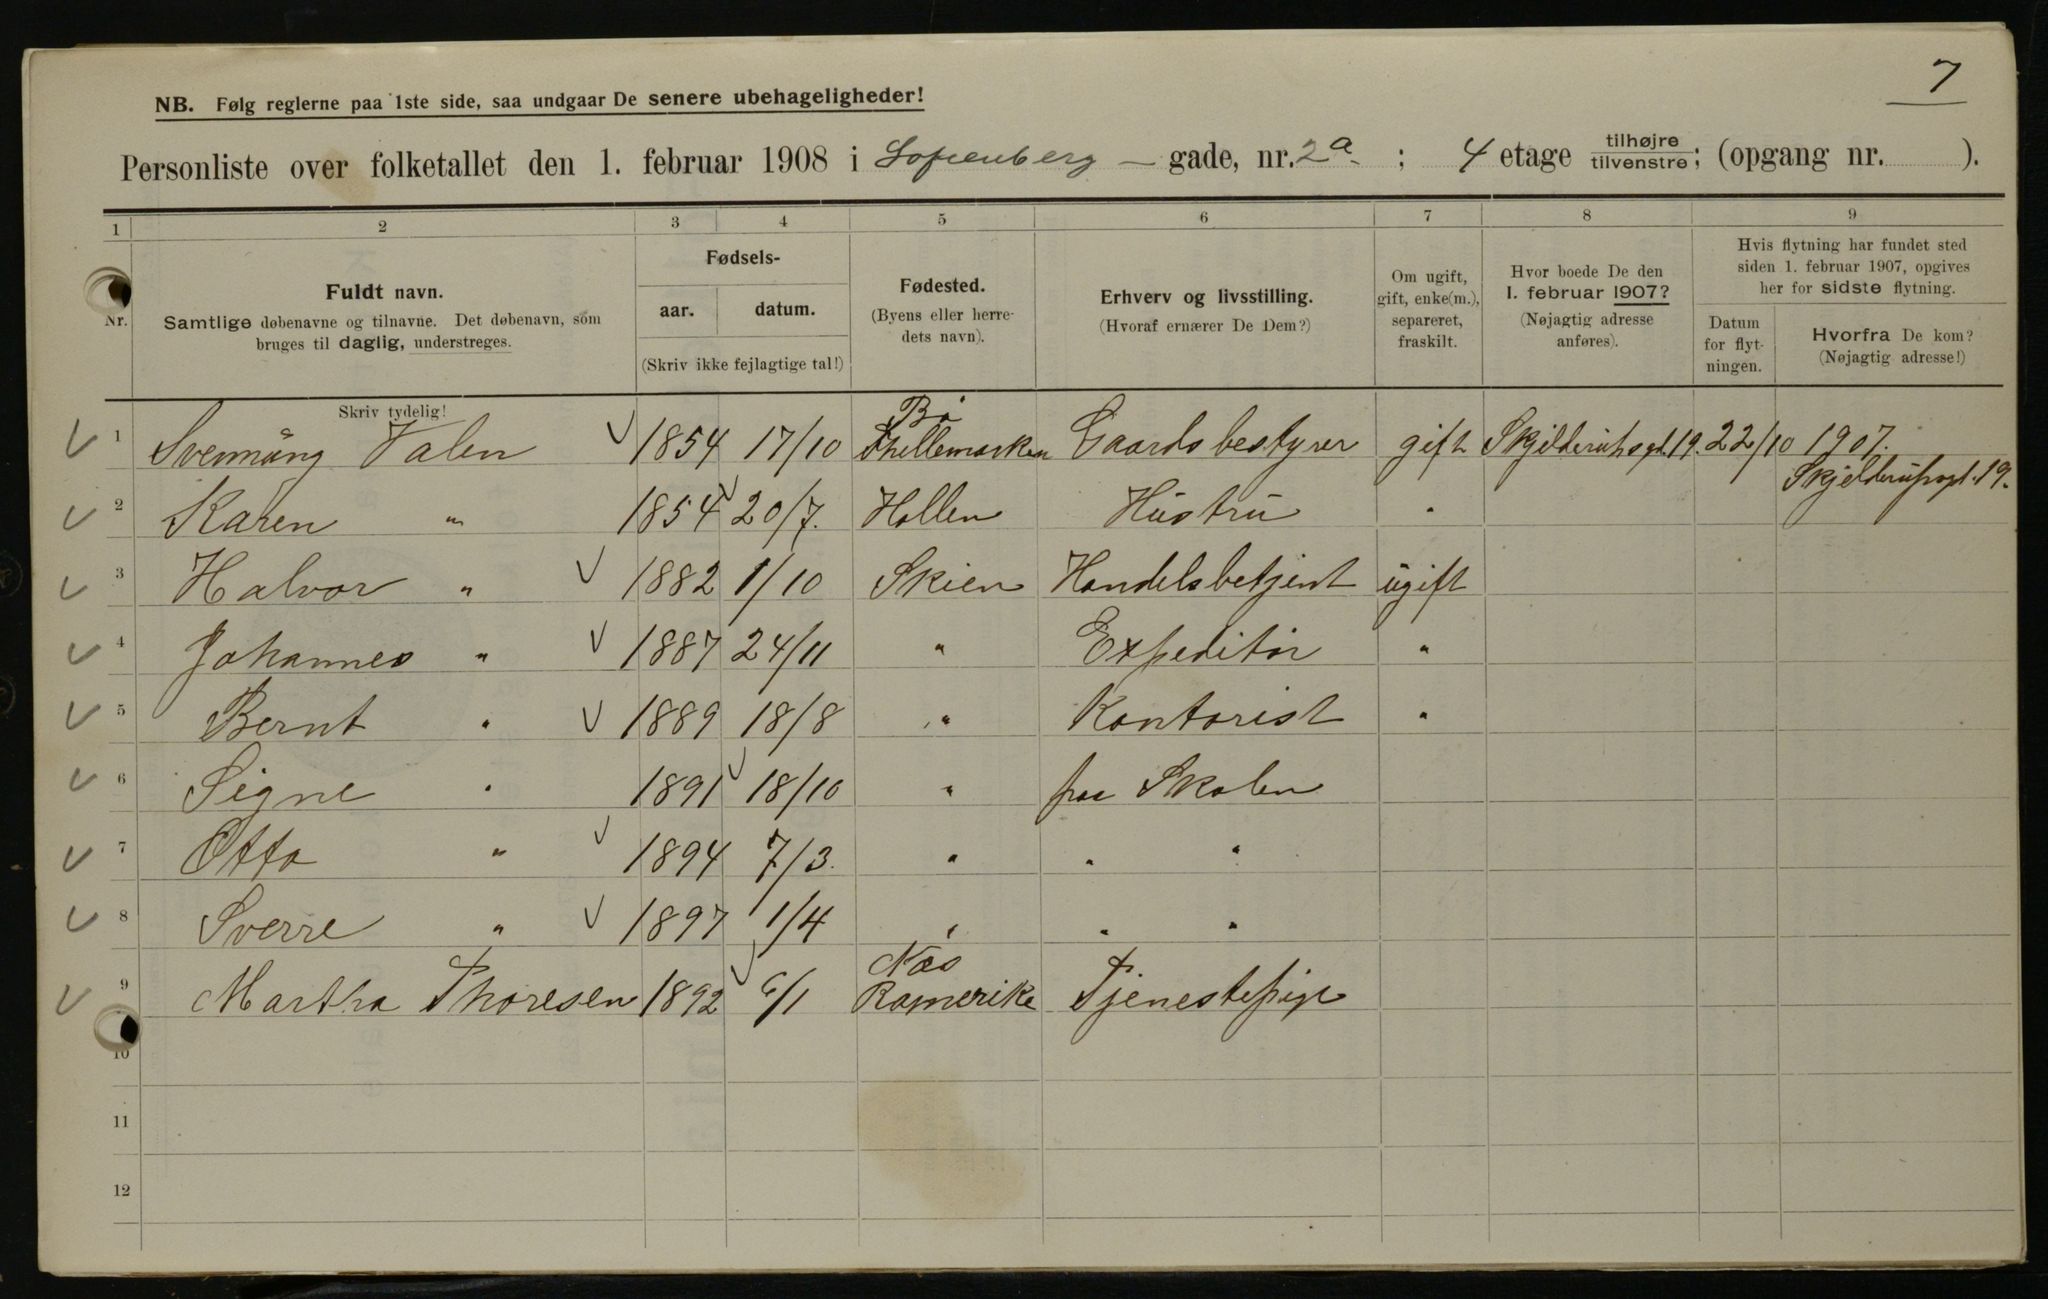 7
NB. Følg reglerne paa 1ste side, saa undgaar De senere ubehageligheder!
Personliste over folketallet den 1. februar 1908 i Sofienberg – gade, nr. 2a ; 4 etage tilhøjre tilvenstre; (opgang nr. ).
1 2 3 4 5 6 7 8 9
Nr.
Fuldt navn.
Samtlige døbenavne og tilnavne. Det døbenavn, som
bruges til daglig, understreges.
Skriv tydelig!
Fødsels-
aar. datum.
(Skriv ikke fejlagtige tal!)
Fødested.
(Byens eller herre-
dets navn).
Erhverv og livsstilling.
(Hvoraf ernærer De Dem?)
Om ugift,
gift, enke(m.),
separeret,
fraskilt.
Hvor boede De den
1. februar 1907?
(Nøjagtig adresse
anføres).
Hvis flytning har fundet sted
siden 1. februar 1907, opgives
her for sidste flytning.
Datum
for flyt-
ningen.
Hvorfra De kom?
(Nøjagtig adresse!)
1 Svennung Valen 1854 17/10 Bø Thellemarken Gaardsbestyrer gift Skjelderupsgt. 19. 22/10 1907. Skjelderupsgt. 19.
2 Karen " 1854 20/7. Hollen Hustru "
3 Halvor " 1882 1/10 Skien Handelsbetjent ugift
4 Johannes " 1887 24/11 " Expeditør "
5 Bernt " 1889 18/8 " Kontorist "
6 Signe " 1891 18/10 " paa Skolen
7 Otto " 1894 7/3. " " "
8 Sverre " 1897 1/4 " " "
9 Martha Thoresen 1892 6/1 Næs Romerike Tjenestepige
10
11
12